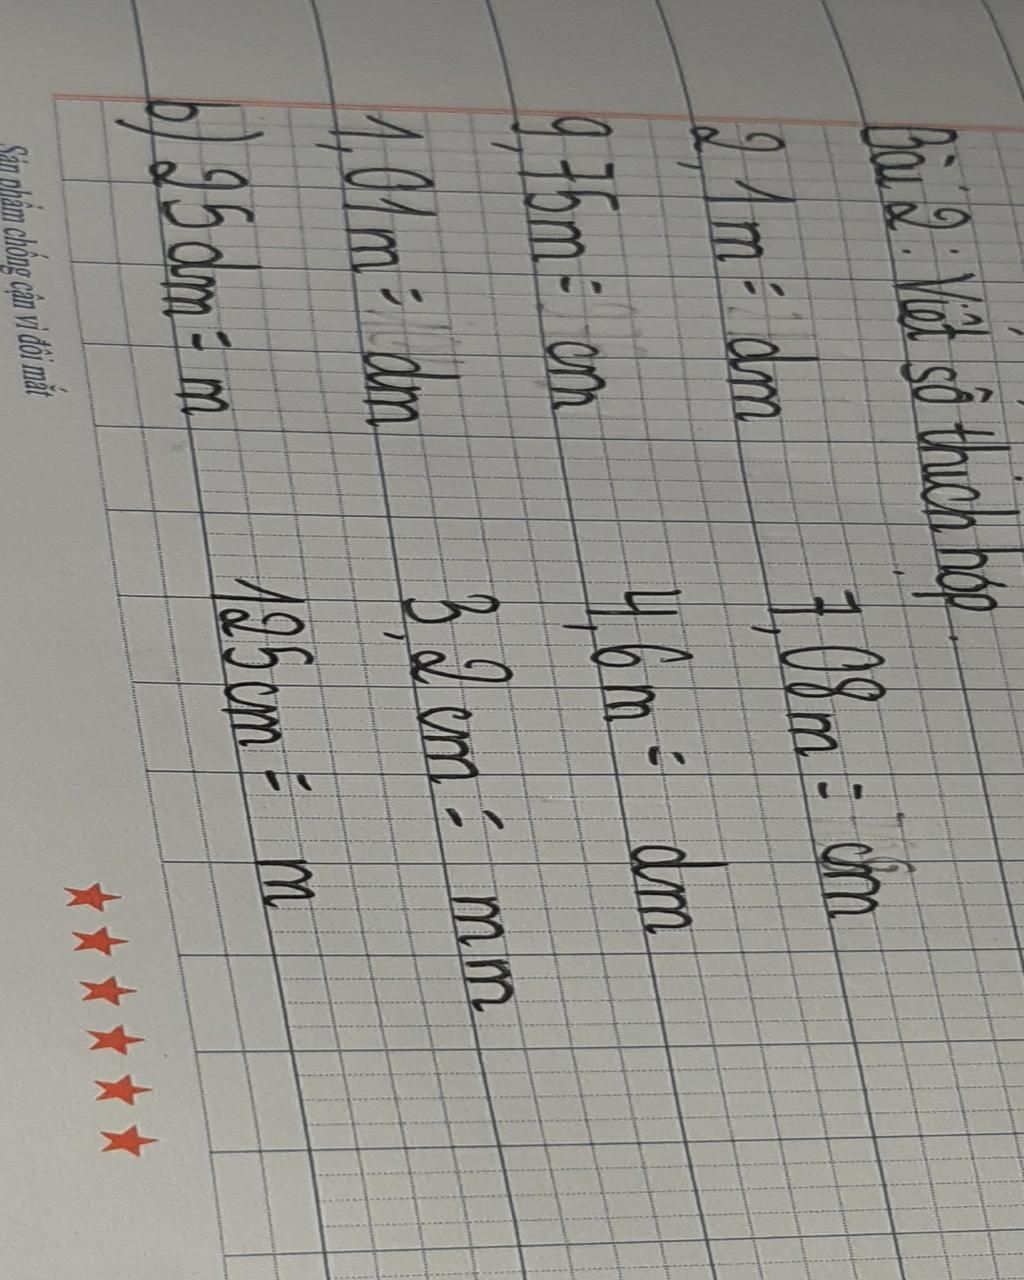 Bài 2: Viết số thích hợp.
2,1m = dm 7,08m = cm
9,75m = cm 4,6m = dm
1,01m = dm 3,2cm = mm
b) 25dm = m 125cm = m
Sản phẩm chống cận vì đôi mắt